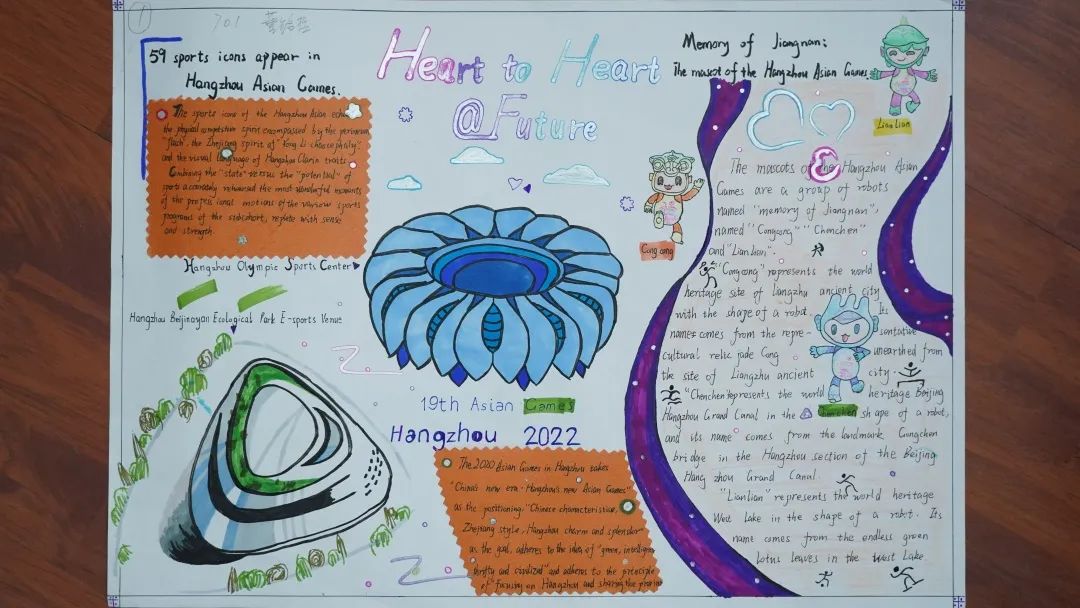 1
701
59 sports icons appear in
Hangzhou Asian Games.
The sports icons of the Hangzhou Asian
the physical competitive spirit encompassed by the
the Zhejiang spirit of
and the visual language of Hangzhou traits
Combining the "state" versus the "potential" of
sports accurately rehearsed the most wonderful moments
of the professional motions of the various sports
programs of the subsehort, replete with sense
and strength.
Hangzhou Olympic Sports Center
Hangzhou Beijingyan Ecological Park E-sports Venue
Heart to Heart
@Future
Cong cong
19th Asian Games
Hangzhou 2022
The 2020 Asian Games in Hangzhou takes
"China's new era · Hangzhou's new Asian Games"
as the positioning, "Chinese characteristics,
Zhejiang style, Hangzhou charm and splendor"
as the goal, adheres to the idea of "green, intelligent
thrifty and civilized" and adheres to the principle
of "focusing on Hangzhou and sharing the
Memory of Jiangnan:
The mascot of the Hangzhou Asian Games.
Lian Lian
The mascots of the Hangzhou Asian
Games are a group of robots
named "memory of Jiangnan",
named "Congcong" "Chenchen"
and "Lianlian".
"Congcong" represents the world
heritage site of Liangzhu ancient city
with the shape of a robot. Its
name comes from the repre- sentative
cultural relic jade Cong unearthed from
the site of Liangzhu ancient city.
"Chenchen" represents the world heritage Beijing
Hangzhou Grand Canal in the shape of a robot,
Chenchen
and its name comes from the landmark Gongchen
bridge in the Hangzhou section of the Beijing
Hang zhou Grand Canal.
"Lianlian" represents the world heritage
West Lake in the shape of a robot. Its
name comes from the endless green
lotus leaves in the West Lake